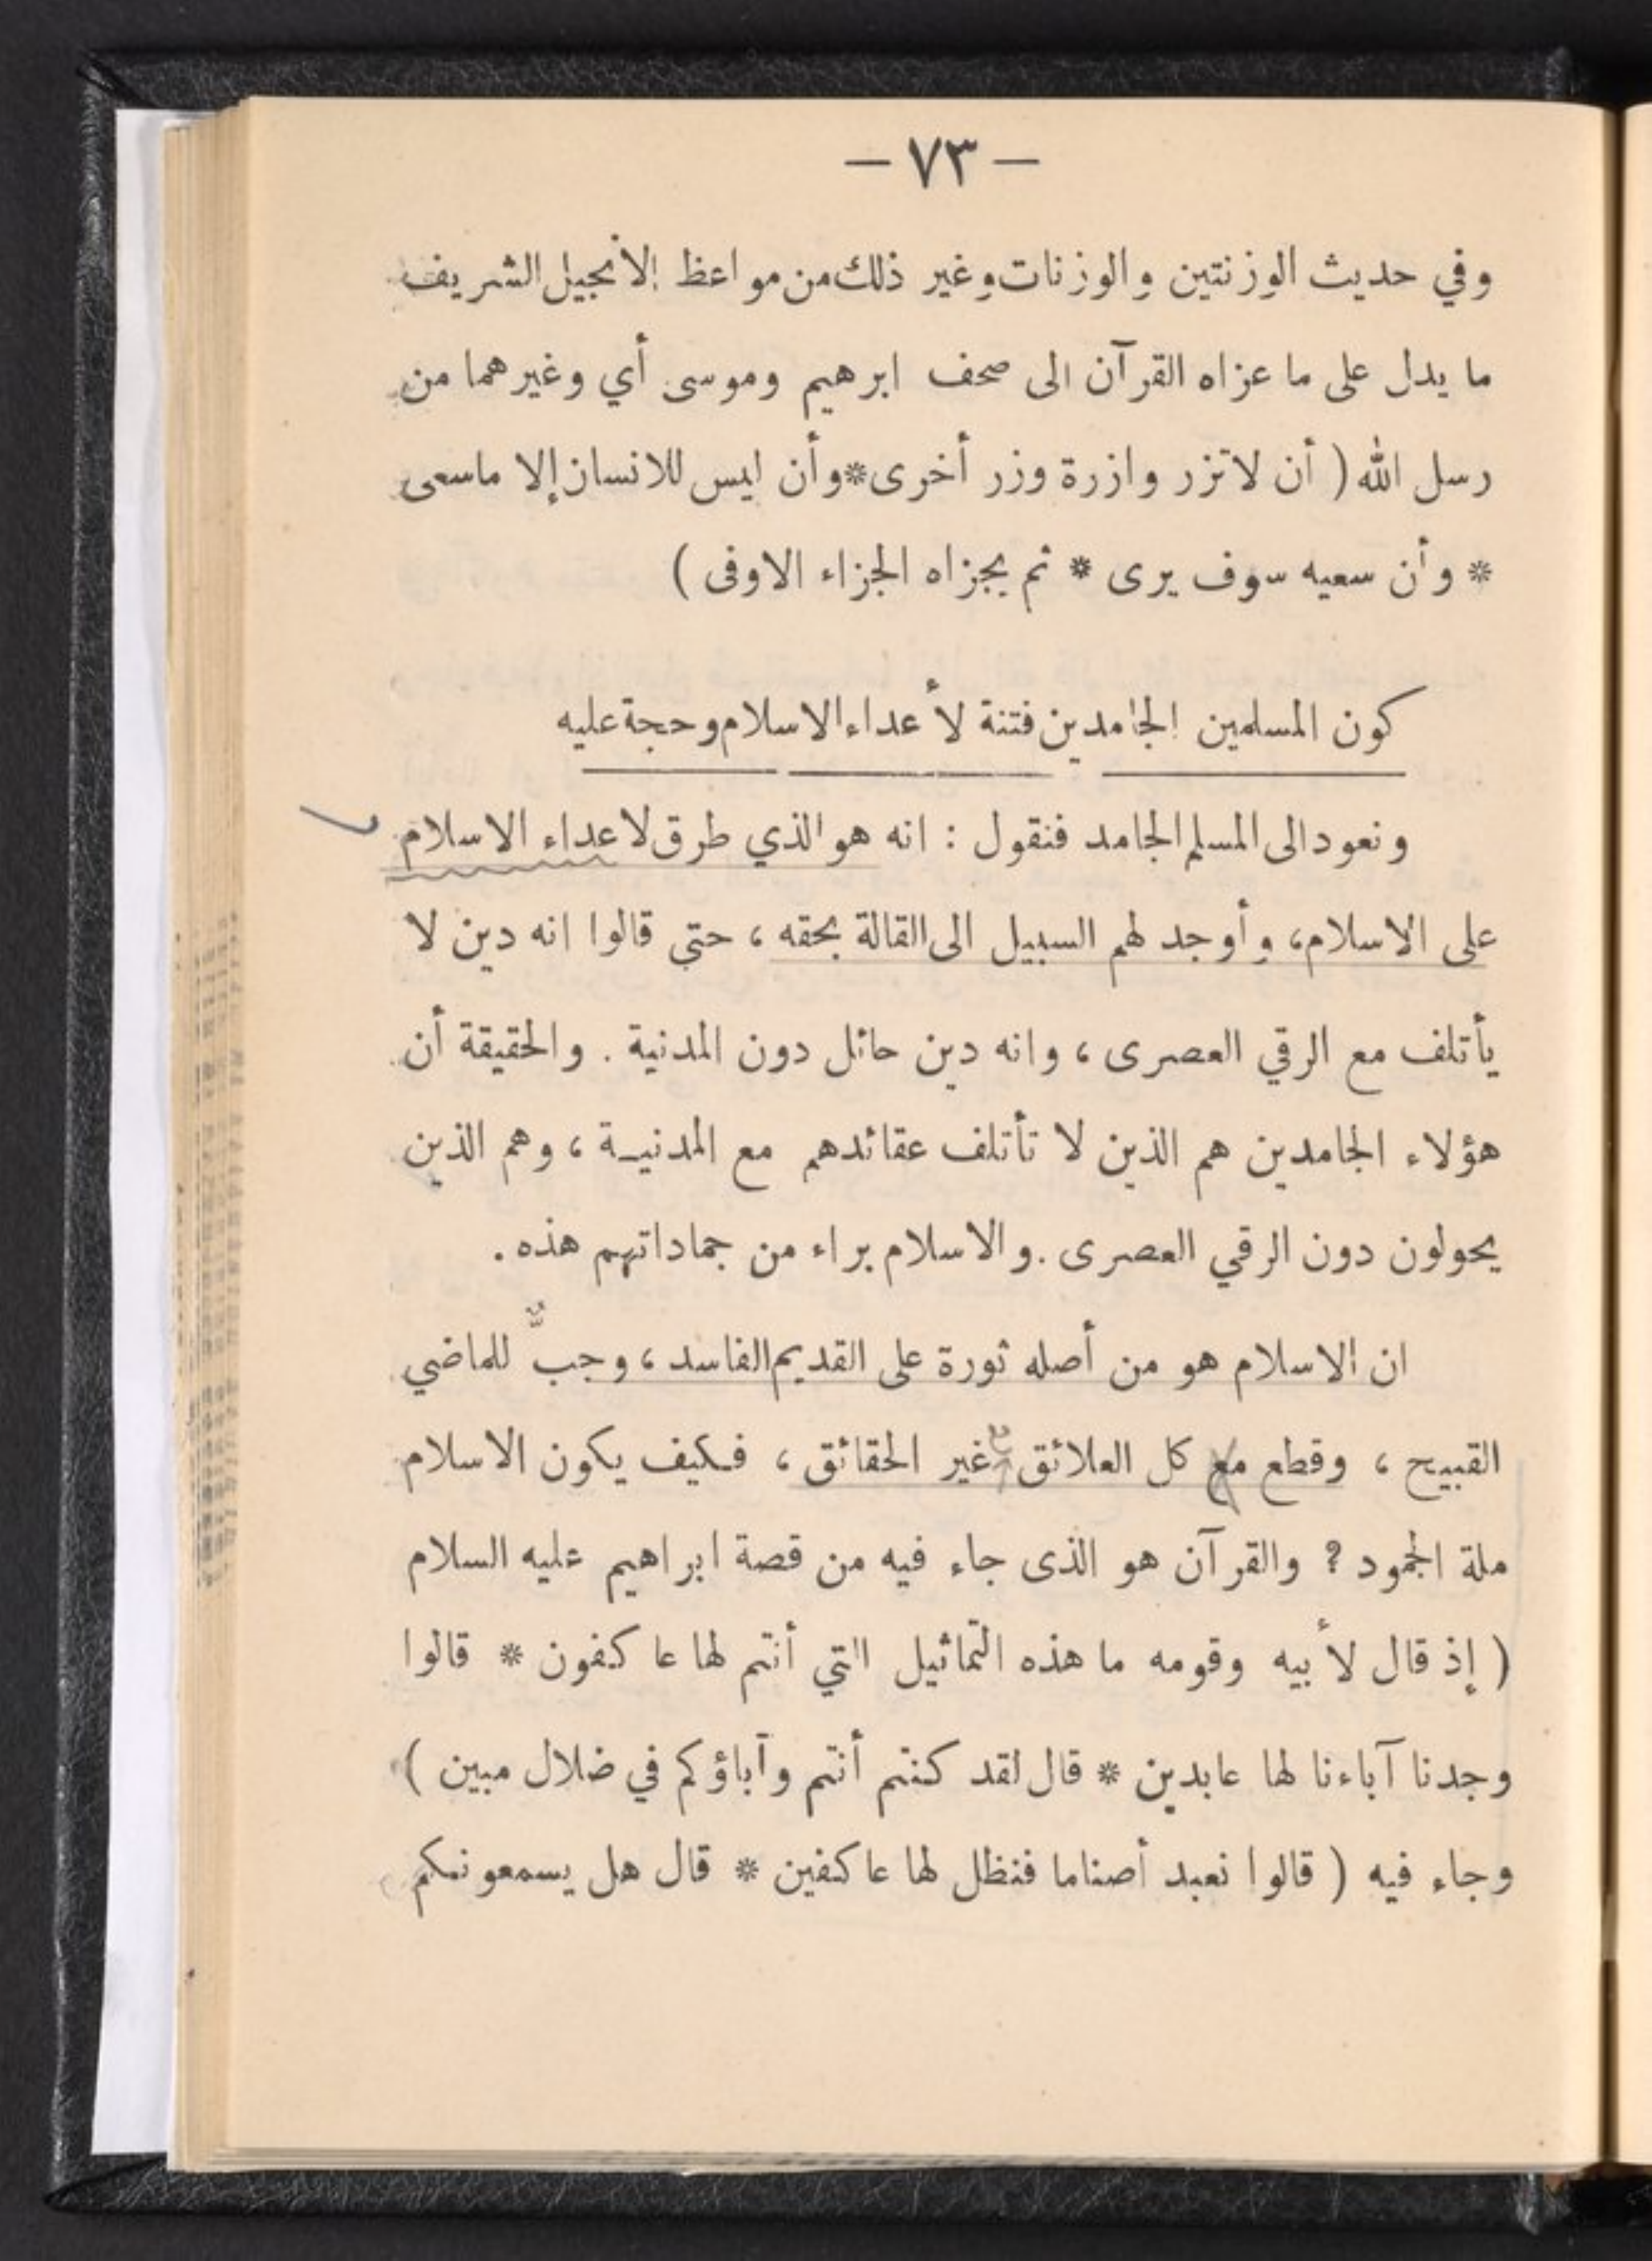 — ٧٣ —
وفي حديث الوزنتين والوزنات وغير ذلك من مواعظ الانجيل الشريف
ما يدل على ما عزاه القرآن الى صحف ابرهيم وموسى أي وغيرهما من
رسل الله ( أن لا تزر وازرة وزر أخرى * وأن ليس للانسان إلا ماسعى
* وأن سعيه سوف يرى * ثم يجزاه الجزاء الاوفى )
كون المسلمين الجامدين فتنة لأعداء الاسلام وحجة عليه
ونعود الى المسلم الجامد فنقول : انه هو الذي طرق لاعداء الاسلام
على الاسلام، وأوجد لهم السبيل الى القالة بحقه ، حتى قالوا انه دين لا
يأتلف مع الرقي العصرى ، وانه دين حائل دون المدنية . والحقيقة أن
هؤلاء الجامدين هم الذين لا تأتلف عقائدهم مع المدنيــة ، وهم الذين
يحولون دون الرقي العصرى . والاسلام براء من جماداتهم هذه .
ان الاسلام هو من أصله ثورة على القديم الفاسد ، وجبٌّ للماضي
القبيح ، وقطع مع كل العلائق مع غير الحقائق ، فكيف يكون الاسلام
ملة الجمود ؟ والقرآن هو الذى جاء فيه من قصة ابراهيم عليه السلام
( إذ قال لأبيه وقومه ما هذه التماثيل التي أنتم لها عاكفون * قالوا
وجدنا آباءنا لها عابدين * قال لقد كنتم أنتم وآباؤكم في ضلال مبين )
وجاء فيه ( قالوا نعبد أصناما فنظل لها عاكفين * قال هل يسمعونكم